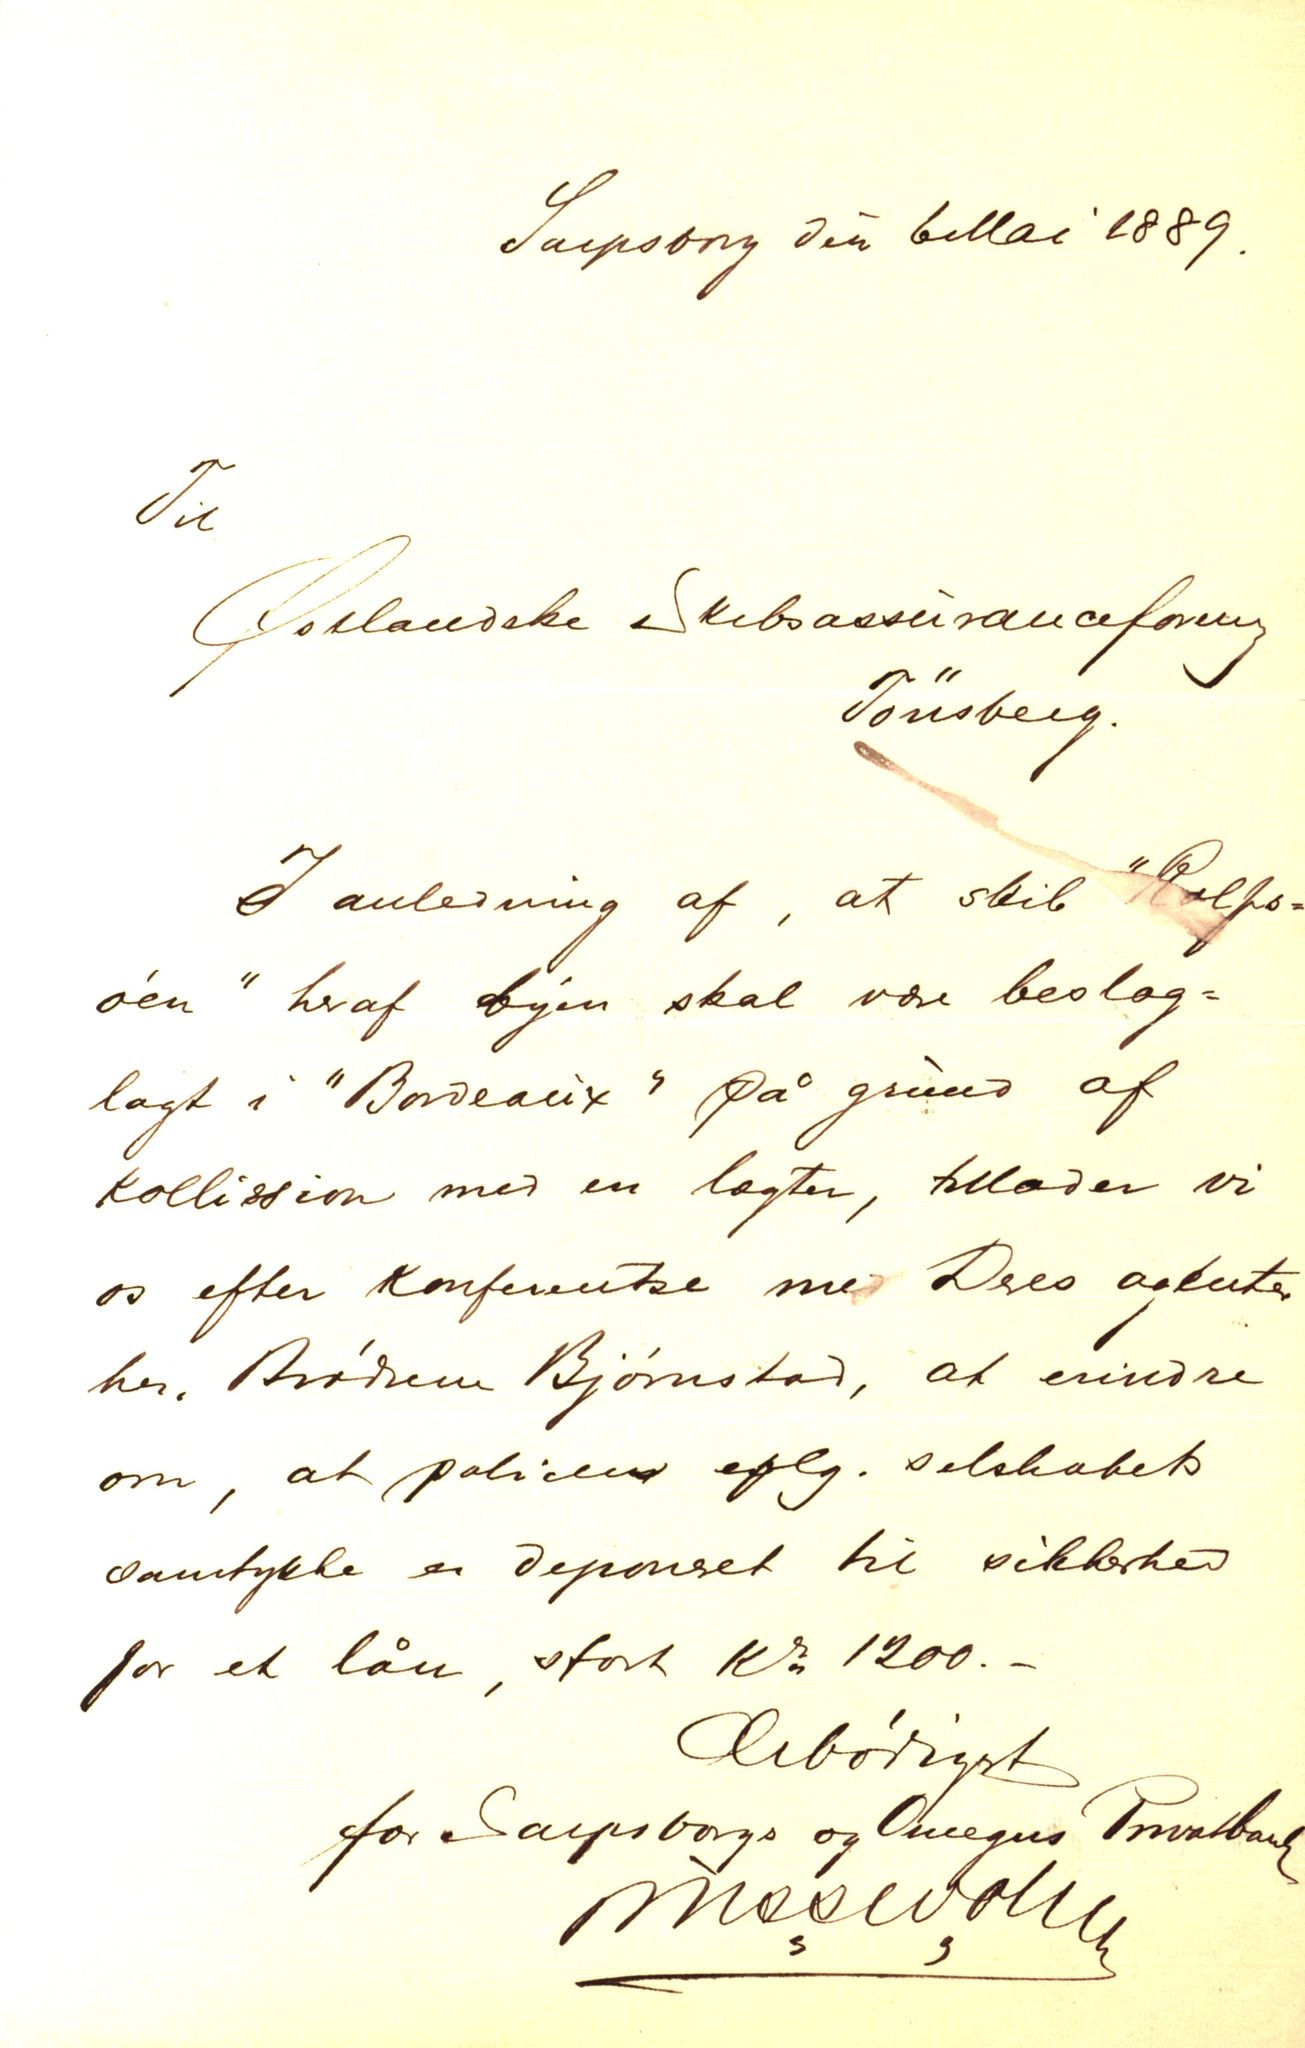 Sarpsborg den 6 Mai 1889.
Til
Østlandske Skibsassuranceforening
Tönsberg.
I anledning af, at skib "Rolfs=
öen" her af byen skal være beslag=
lagt i "Bordeaux" på grund af
kollission med en lægter, tillader vi
os efter konferentse med Deres agenter
her, Brödrene Björnstad, at erindre
om, at policen eftlg. selskabets
samtykke er deponeret til sikkerhed
for et lån, stort Kr 1200.-
Ærbödigst
for Sarpsborgs og Omegns Privatbank